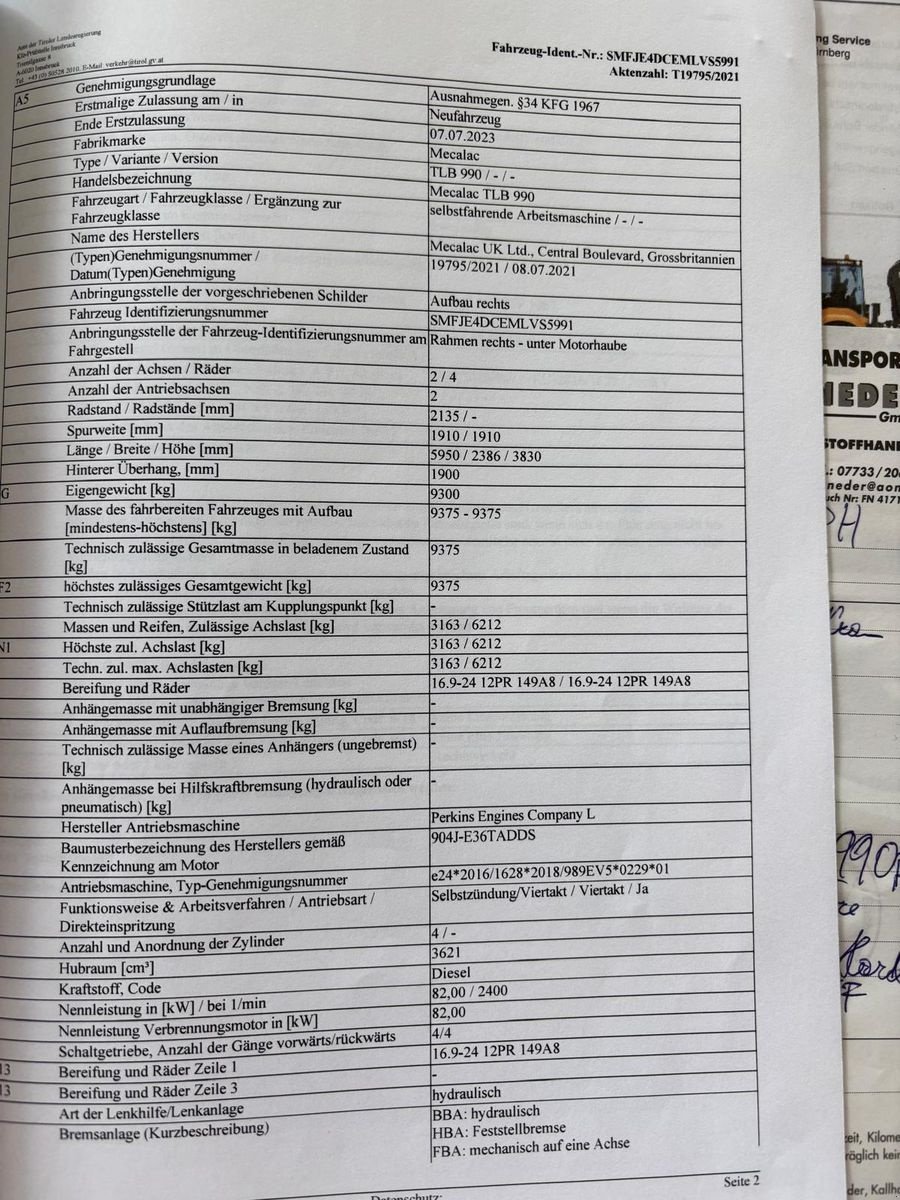 Amt der Tiroler Landesregierung
Kfz-Prüfstelle Innsbruck
A-6020 Innsbruck
Tel. +43 (0) 50528 2010, E-Mail verkehr@tirol.gv.at
Fahrzeug-Ident.-Nr.: SMFJE4DCEMLVS5991
Aktenzahl: T19795/2021
A5 Genehmigungsgrundlage Ausnahmegen. §34 KFG 1967
Erstmalige Zulassung am / in Neufahrzeug
Ende Erstzulassung 07.07.2023
Fabrikmarke Mecalac
Type / Variante / Version TLB 990 / - / -
Handelsbezeichnung Mecalac TLB 990
Fahrzeugart / Fahrzeugklasse / Ergänzung zur selbstfahrende Arbeitsmaschine / - / -
Fahrzeugklasse
Name des Herstellers Mecalac UK Ltd., Central Boulevard, Grossbritannien
(Typen)Genehmigungsnummer / 19795/2021 / 08.07.2021
Datum(Typen)Genehmigung
Anbringungsstelle der vorgeschriebenen Schilder Aufbau rechts
Fahrzeug Identifizierungsnummer SMFJE4DCEMLVS5991
Anbringungsstelle der Fahrzeug-Identifizierungsnummer am Rahmen rechts - unter Motorhaube
Fahrgestell
Anzahl der Achsen / Räder 2 / 4
Anzahl der Antriebsachsen 2
Radstand / Radstände [mm] 2135 / -
Spurweite [mm] 1910 / 1910
Länge / Breite / Höhe [mm] 5950 / 2386 / 3830
Hinterer Überhang, [mm] 1900
G Eigengewicht [kg] 9300
Masse des fahrbereiten Fahrzeuges mit Aufbau 9375 - 9375
[mindestens-höchstens] [kg]
Technisch zulässige Gesamtmasse in beladenem Zustand 9375
[kg]
F2 höchstes zulässiges Gesamtgewicht [kg] 9375
Technisch zulässige Stützlast am Kupplungspunkt [kg] -
Massen und Reifen, Zulässige Achslast [kg] 3163 / 6212
N1 Höchste zul. Achslast [kg] 3163 / 6212
Techn. zul. max. Achslasten [kg] 3163 / 6212
Bereifung und Räder 16.9-24 12PR 149A8 / 16.9-24 12PR 149A8
Anhängemasse mit unabhängiger Bremsung [kg] -
Anhängemasse mit Auflaufbremsung [kg] -
Technisch zulässige Masse eines Anhängers (ungebremst) -
[kg]
Anhängemasse bei Hilfskraftbremsung (hydraulisch oder -
pneumatisch) [kg]
Hersteller Antriebsmaschine Perkins Engines Company L
Baumusterbezeichnung des Herstellers gemäß 904J-E36TADDS
Kennzeichnung am Motor
Antriebsmaschine, Typ-Genehmigungsnummer e24*2016/1628*2018/989EV5*0229*01
Funktionsweise & Arbeitsverfahren / Antriebsart / Selbstzündung/Viertakt / Viertakt / Ja
Direkteinspritzung
Anzahl und Anordnung der Zylinder 4 / -
Hubraum [cm³] 3621
Kraftstoff, Code Diesel
Nennleistung in [kW] / bei 1/min 82,00 / 2400
Nennleistung Verbrennungsmotor in [kW] 82,00
Schaltgetriebe, Anzahl der Gänge vorwärts/rückwärts 4/4
13 Bereifung und Räder Zeile 1 16.9-24 12PR 149A8
13 Bereifung und Räder Zeile 3 -
Art der Lenkhilfe/Lenkanlage hydraulisch
Bremsanlage (Kurzbeschreibung) BBA: hydraulisch
HBA: Feststellbremse
FBA: mechanisch auf eine Achse
Seite 2
Datenschutz:
ng Service
rnberg
ANSPOR
IEDE
Gm
STOFFHAN
.: 07733/20
neder@aon
uch Nr: FN 4171
990
eit, Kilome
räglich kei
der, Kallh